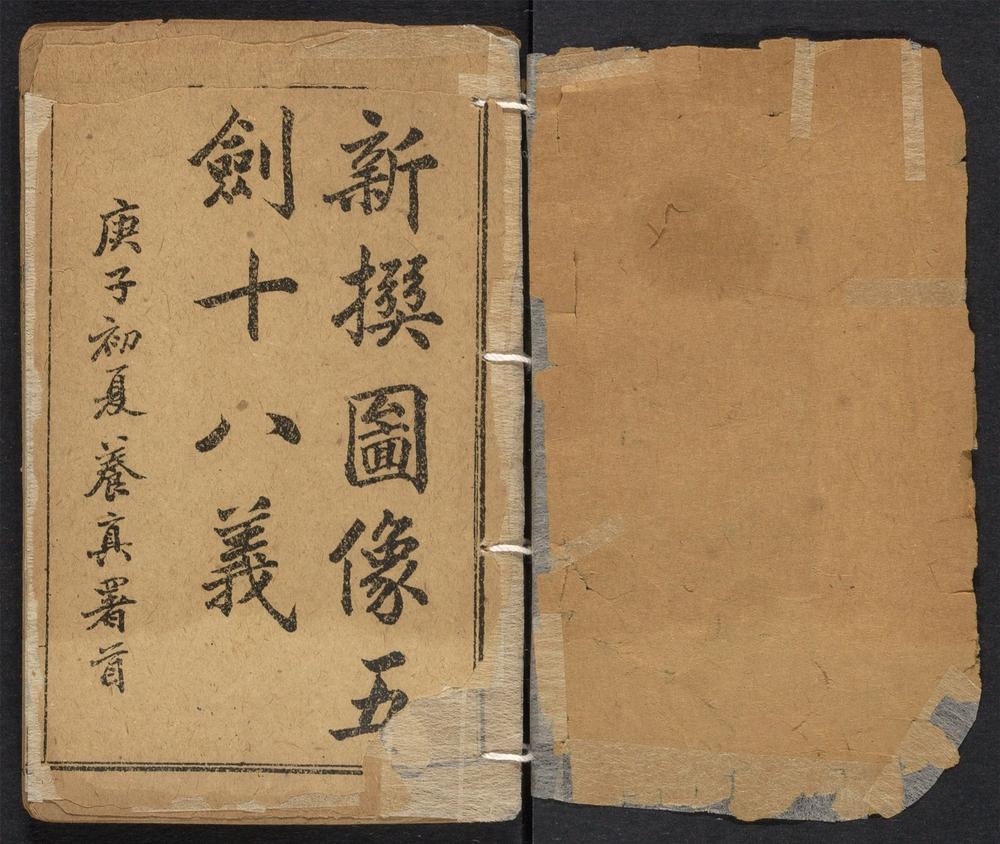 新撰圖像五
劍十八義
庚子初夏養真署首